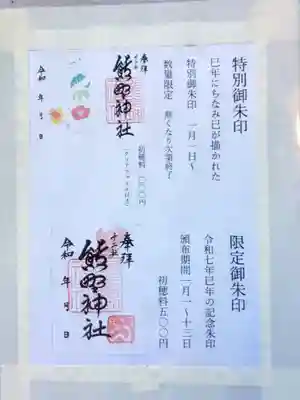 特別御朱印
巳年にちなみ巳が描かれた
特別御朱印　一月一日〜
数量限定　無くなり次第終了
初穂料一〇〇〇円
奉拝
十二社
熊野神社
令和　年　月　日
限定御朱印
令和七年巳年の記念朱印
頒布期間一月一〜十三日
初穂料五〇〇円
奉拝
十二社
熊野神社
令和　年　月　日